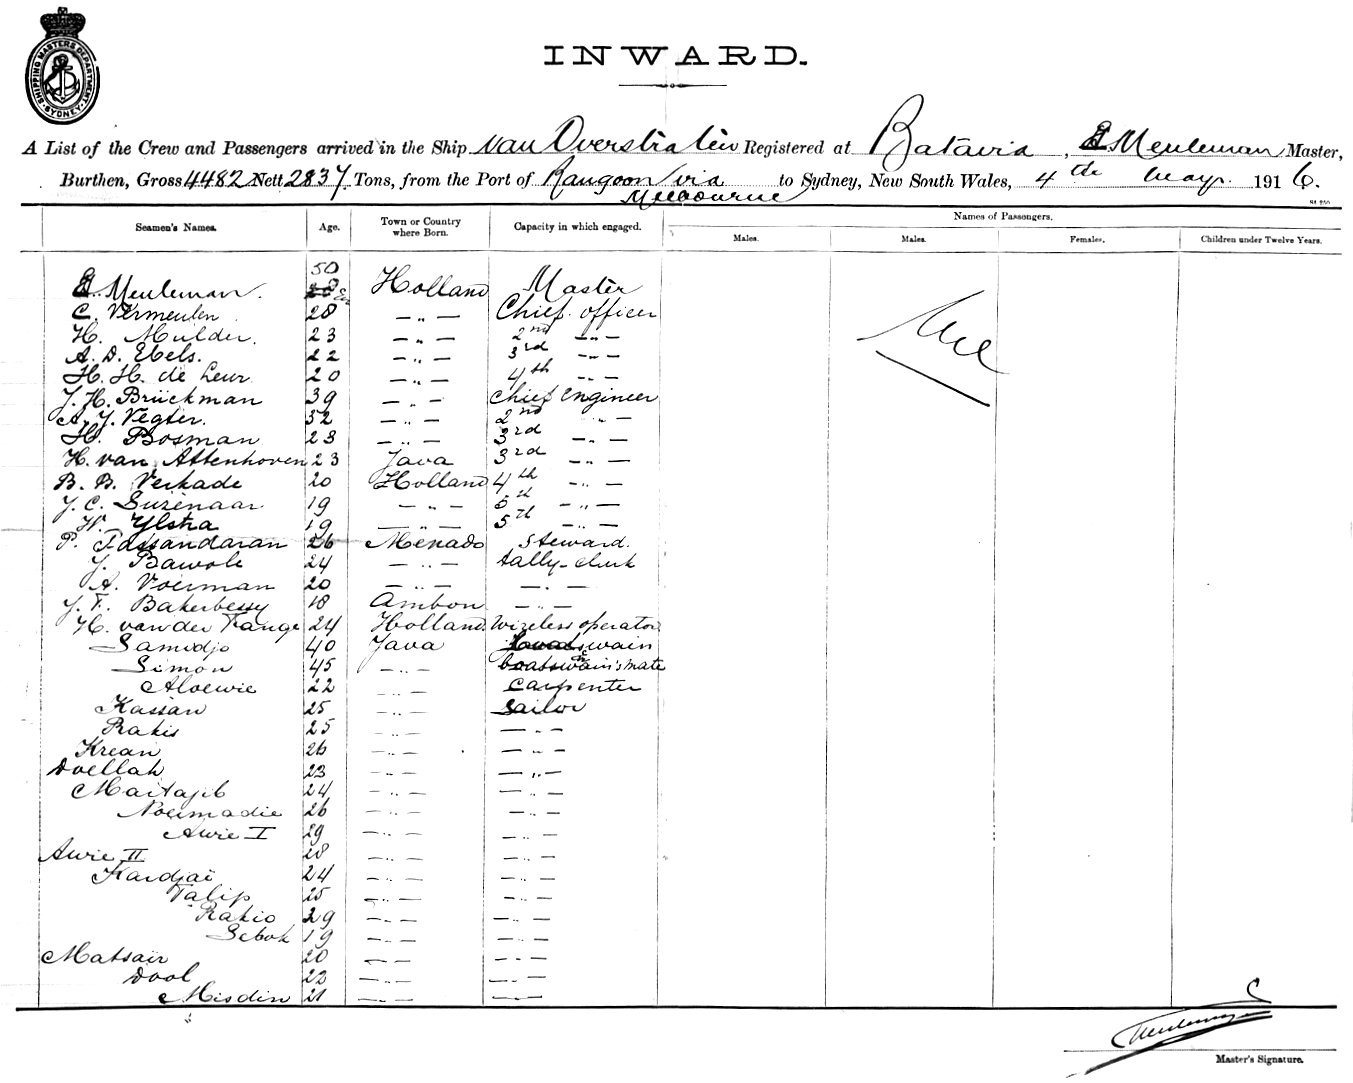 SHIPPING MASTERS DEPARTMENT SYDNEY
INWARD.
A List of the Crew and Passengers arrived in the Ship van Overstraten Registered at Batavia, E Meuleman Master,
Burthen, Gross 4482 Nett 2837 Tons, from the Port of Rangoon via Melbourne to Sydney, New South Wales, 4th May 1916.
Seamen's Names. Age. Town or Country where Born. Capacity in which engaged. Names of Passengers.
Males. Males. Females. Children under Twelve Years.
E. Meuleman. 50 Holland Master
C. Vermeulen 28 — „ — Chief officer
H. Mulder. 23 — „ — 2nd — „ —
A. D. Ebels. 22 — „ — 3rd — „ —
H. H. de Leur 20 — „ — 4th — „ —
J. H. Brückman 39 — „ — Chief Engineer
A. J. Vegter. 32 — „ — 2nd „ —
H. Bosman 23 — „ — 3rd — „ —
H. van Attenhoven 23 Java 3rd — „ —
B. B. Verkade 20 Holland 4th — „ —
J. C. Suzenaar 19 — „ — 5th — „ —
W. Ylstra 19 — „ — 5th — „ —
P. Passandaran 26 Menado Steward.
J. Bawole 24 — „ — tally-clerk
A. Voerman 20 — „ — — „ —
J. F. Bakerbessy 18 Ambon — „ —
H. van der Tange 24 Holland Wireless operator
Samidjo 40 Java swain
Simon 45 — „ — boatswain's mate
Aloewie 22 — „ — Carpenter
Kassan 25 — „ — Sailor
Rakis 25 — „ — — „ —
Krean 26 — „ — — „ —
Doellah 23 — „ — — „ —
Maitajib 24 — „ — — „ —
Noermadie 26 — „ — — „ —
Awie I 29 — „ — — „ —
Awie II 28 — „ — — „ —
Kardjaï 24 — „ — — „ —
Talip 25 — „ — — „ —
Rakio 29 — „ — — „ —
Sebok 19 — „ — — „ —
Matsair 20 — „ — — „ —
Dool 22 — „ — — „ —
Misdin 21 — „ — — „ —
Meuleman
Master's Signature.